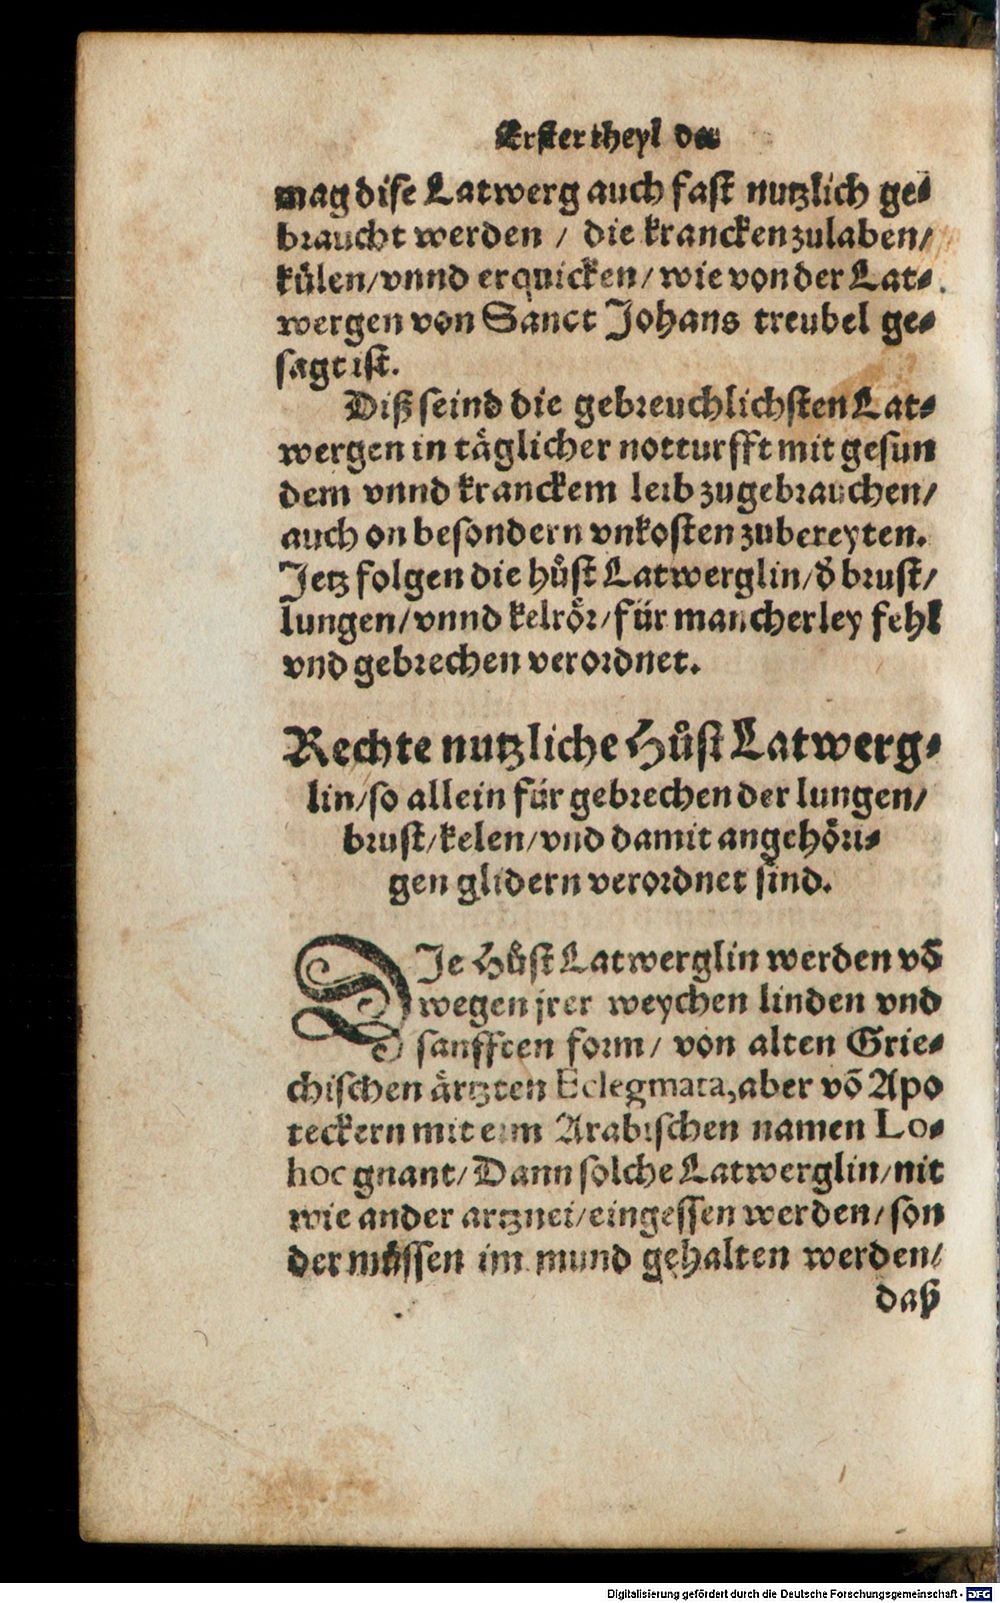 Erster theyl der
mag dise Latwerg auch fast nutzlich ge⸗
braucht werden / die krancken zulaben/
külen/vnnd erquicken/wie von der Lat⸗
wergen von Sanct Johans treubel ge⸗
sagt ist.
Diß seind die gebreuchlichsten Lat⸗
wergen in täglicher notturfft mit gesun
dem vnnd kranckem leib zugebrauchen/
auch on besondern vnkosten zubereyten.
Jetz folgen die hůst Latwerglin/d̓ brust/
lungen/vnnd kelrör/für mancherley fehl
vnd gebrechen verordnet.
Rechte nutzliche Hůst Latwerg⸗
lin/so allein für gebrechen der lungen/
brust/kelen/vnd damit angehöri⸗
gen glidern verordnet sind.
DJe Hůst Latwerglin werden vō
wegen jrer weychen linden vnd
sanfften form/ von alten Grie⸗
chischen ärtzten Eclegmata, aber vō Apo
teckern mit eim Arabischen namen Lo⸗
hoc gnant/Dann solche Latwerglin/nit
wie ander artznei/eingessen werden/son
der můssen im mund gehalten werden/
daß
Digitalisierung gefördert durch die Deutsche Forschungsgemeinschaft - DFG